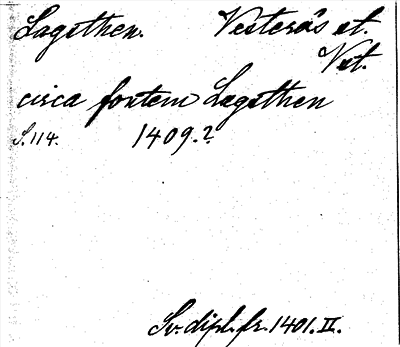 Lagsthen. Vesterås st.
Vst.
circa fontem Lagsthen
S. 114. 1409.?
Sv. dipl. fr. 1401. II.